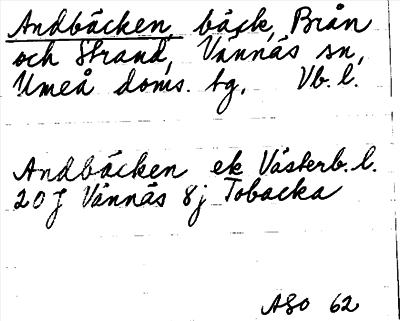 Andbäcken, bäck, Brån
och Strand, Vännäs sn,
Umeå doms. tg, Vb. l.
Andbäcken ek Västerb. l.
20 J Vännäs 8j Tobacka
ASO 62